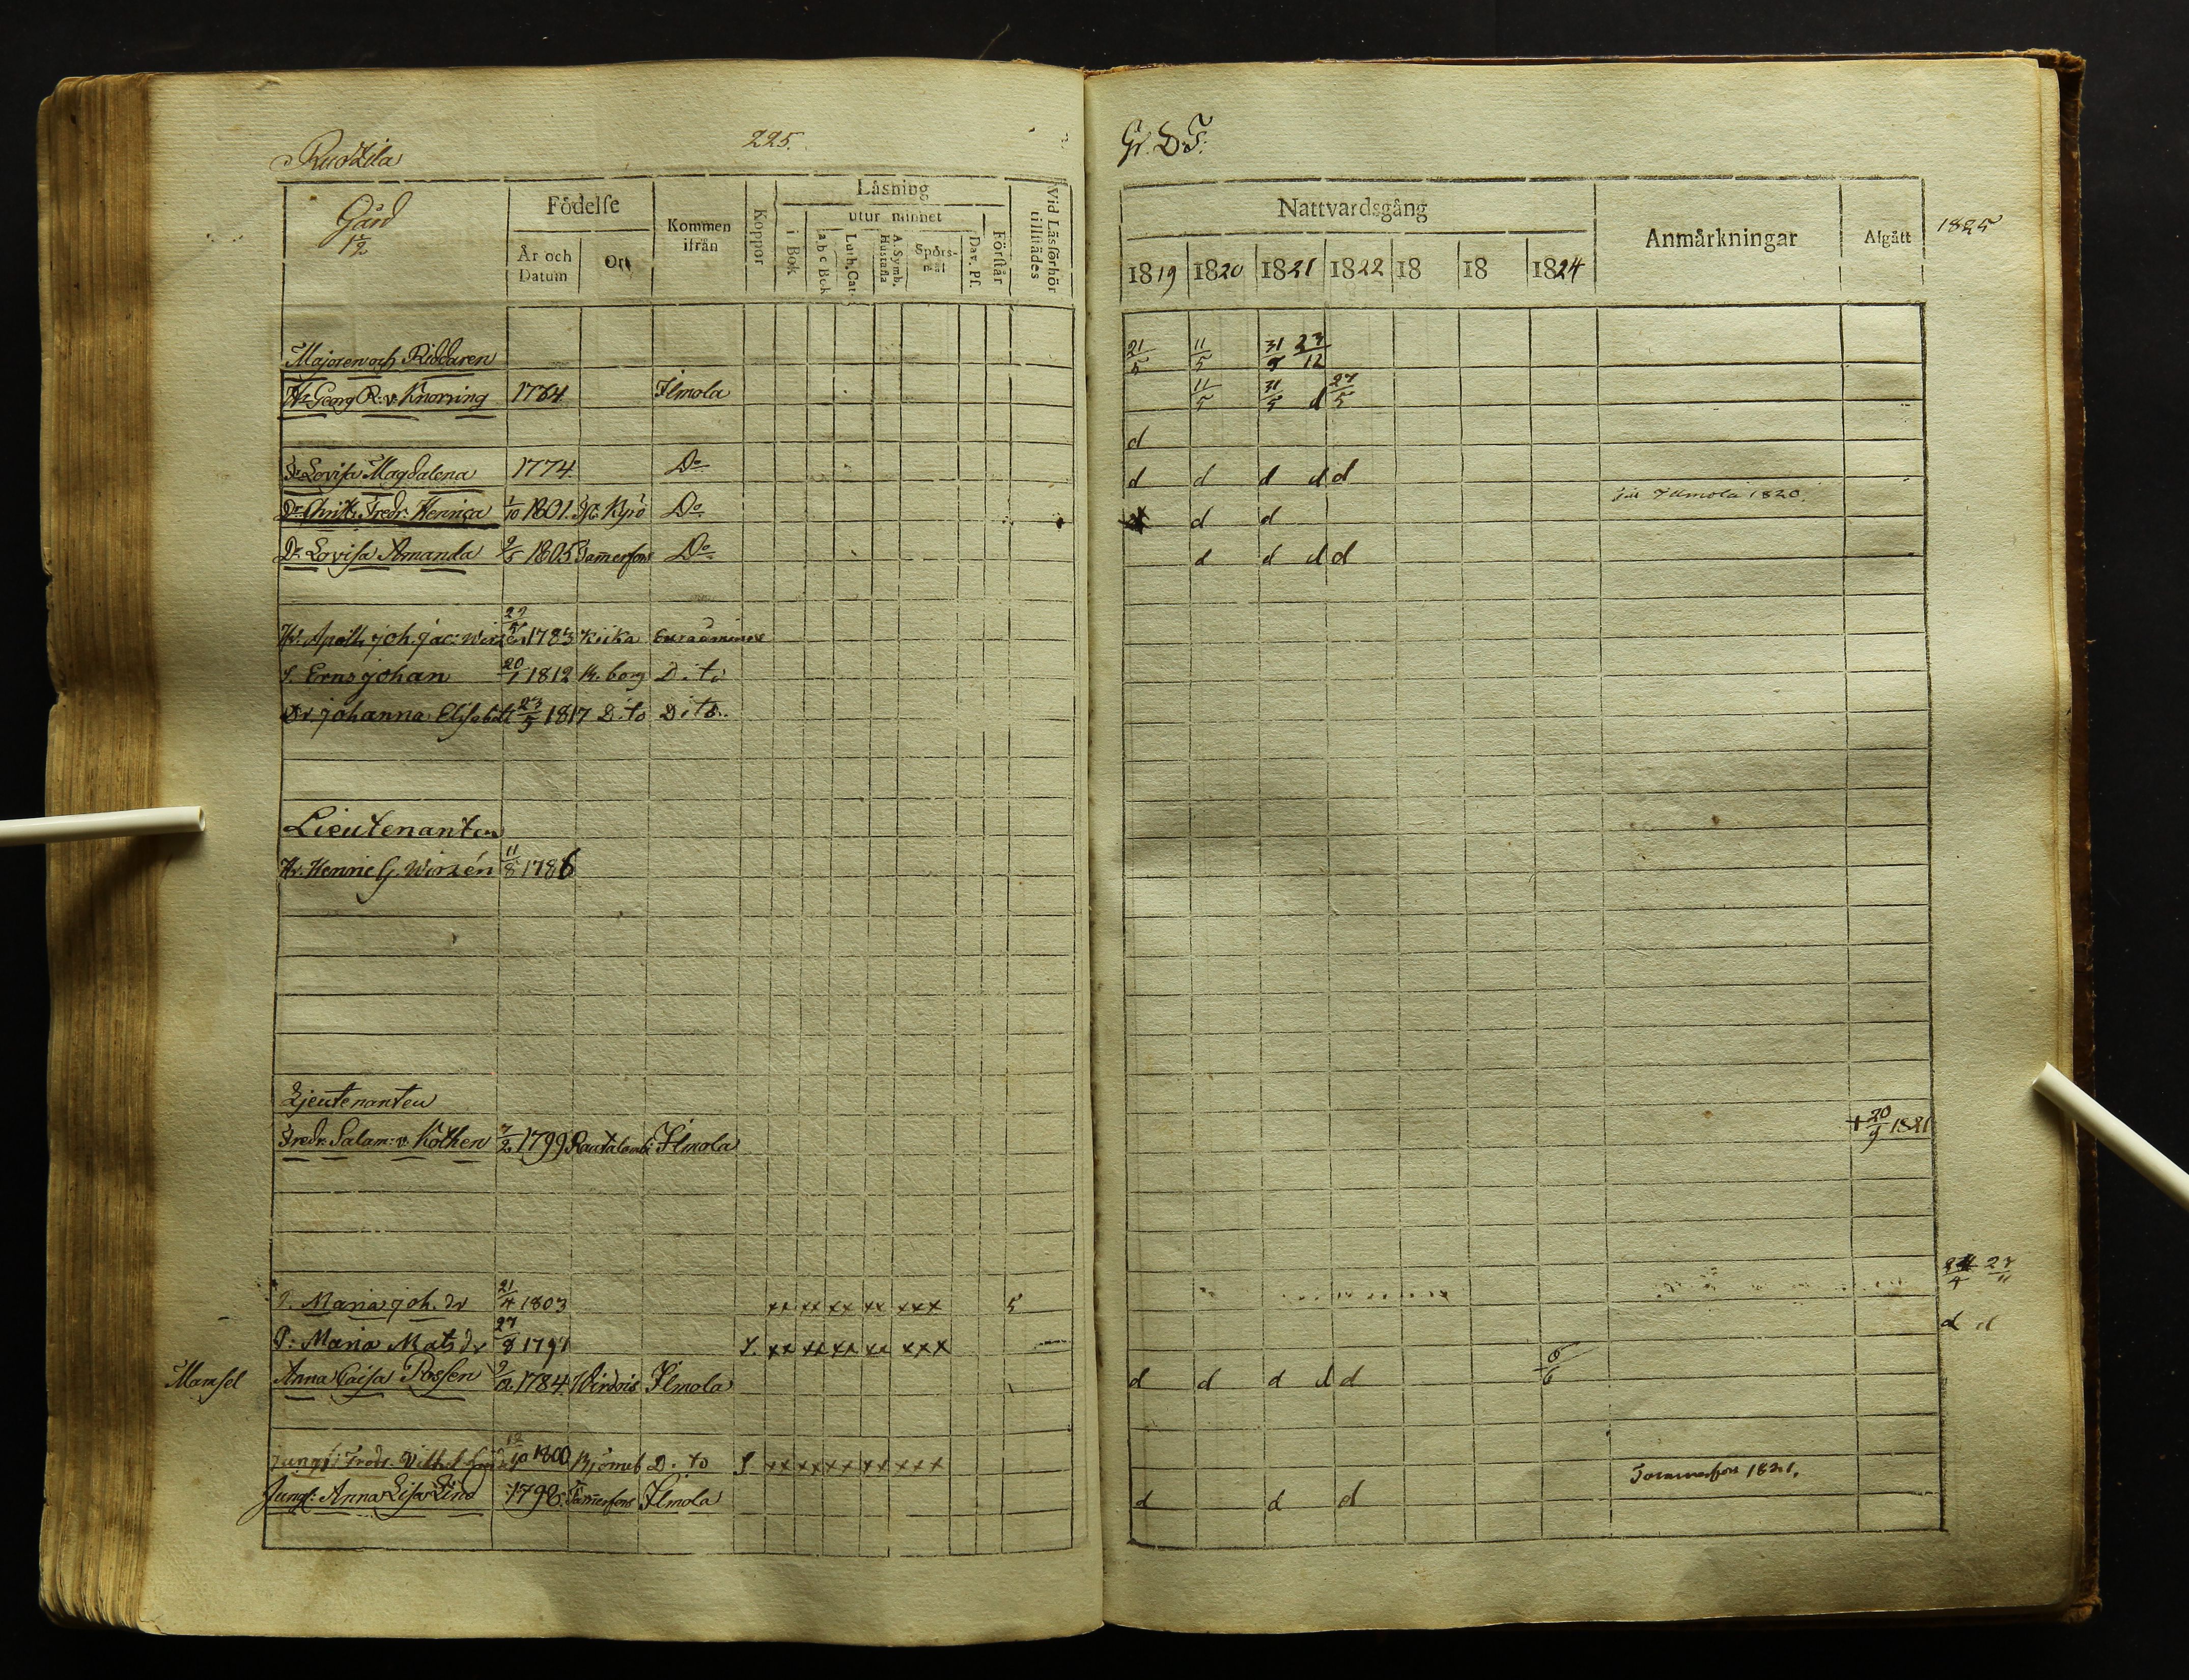 225.
Gård
1/2
Födelse
År och Datum
Ort
Kommen ifrån
Koppor
Läsning
i Bok
utur minnet
a b c Bok
Luth. Cat.
A. Symb. Hustafla
Spörs-mål
Dav. Ps.
Förstår
Vid Läsförhör tillstädes
Majoren och Riddaren
Hr Georg R. v. Knorring 1764 Ilmola
Fr. Lovisa Magdalena 1774 Do
Dr. Fredr. Henrica 1/10 1801. Kyrö Do
Dr. Lovisa Amanda 1805 Tamerfors Do
Hr. Apoth. Joh. Jac: 1783 Kiika
S. Erns Johan 20/1 1812 B. borg D. to
Dr Johanna Elisabeth 23/5 1817 D. to D i to.
Lieutenanten
Hr. Henric G. Wirzén 11/8 1786
Ljeutenanten
Fredr. Salam: v. Kothen 7/2 1799 Rautalambi Ilmola
P. Maria Joh. dr 21/4 1803 xx xx xx xx xxx 5
P: Maria Mats dr 27/8 1797 S. xx xx xx xx xxx
Mamsel Anna Caisa Possen 1784 Wirdois Ilmola
Jungf. Fredr. 12/10 1800 Björneb D. to S. xx xx xx xx xxx
Jungf: Anna Lisa Lind 1798. Tamerfors Ilmola
Gr. D. F.
Nattvardsgång
Anmärkningar
Afgått
1825
1819 1820 1821 1822 18 18 1824
21/5 11/5 31/5 23/12
11/5 31/5 d 27/5
d
d d d d d
d d Till Illmola 1820.
d d d d
† 20/9 1821
27/11
d d
d d d d d 6/6
Tammerfors 1821.
d d d